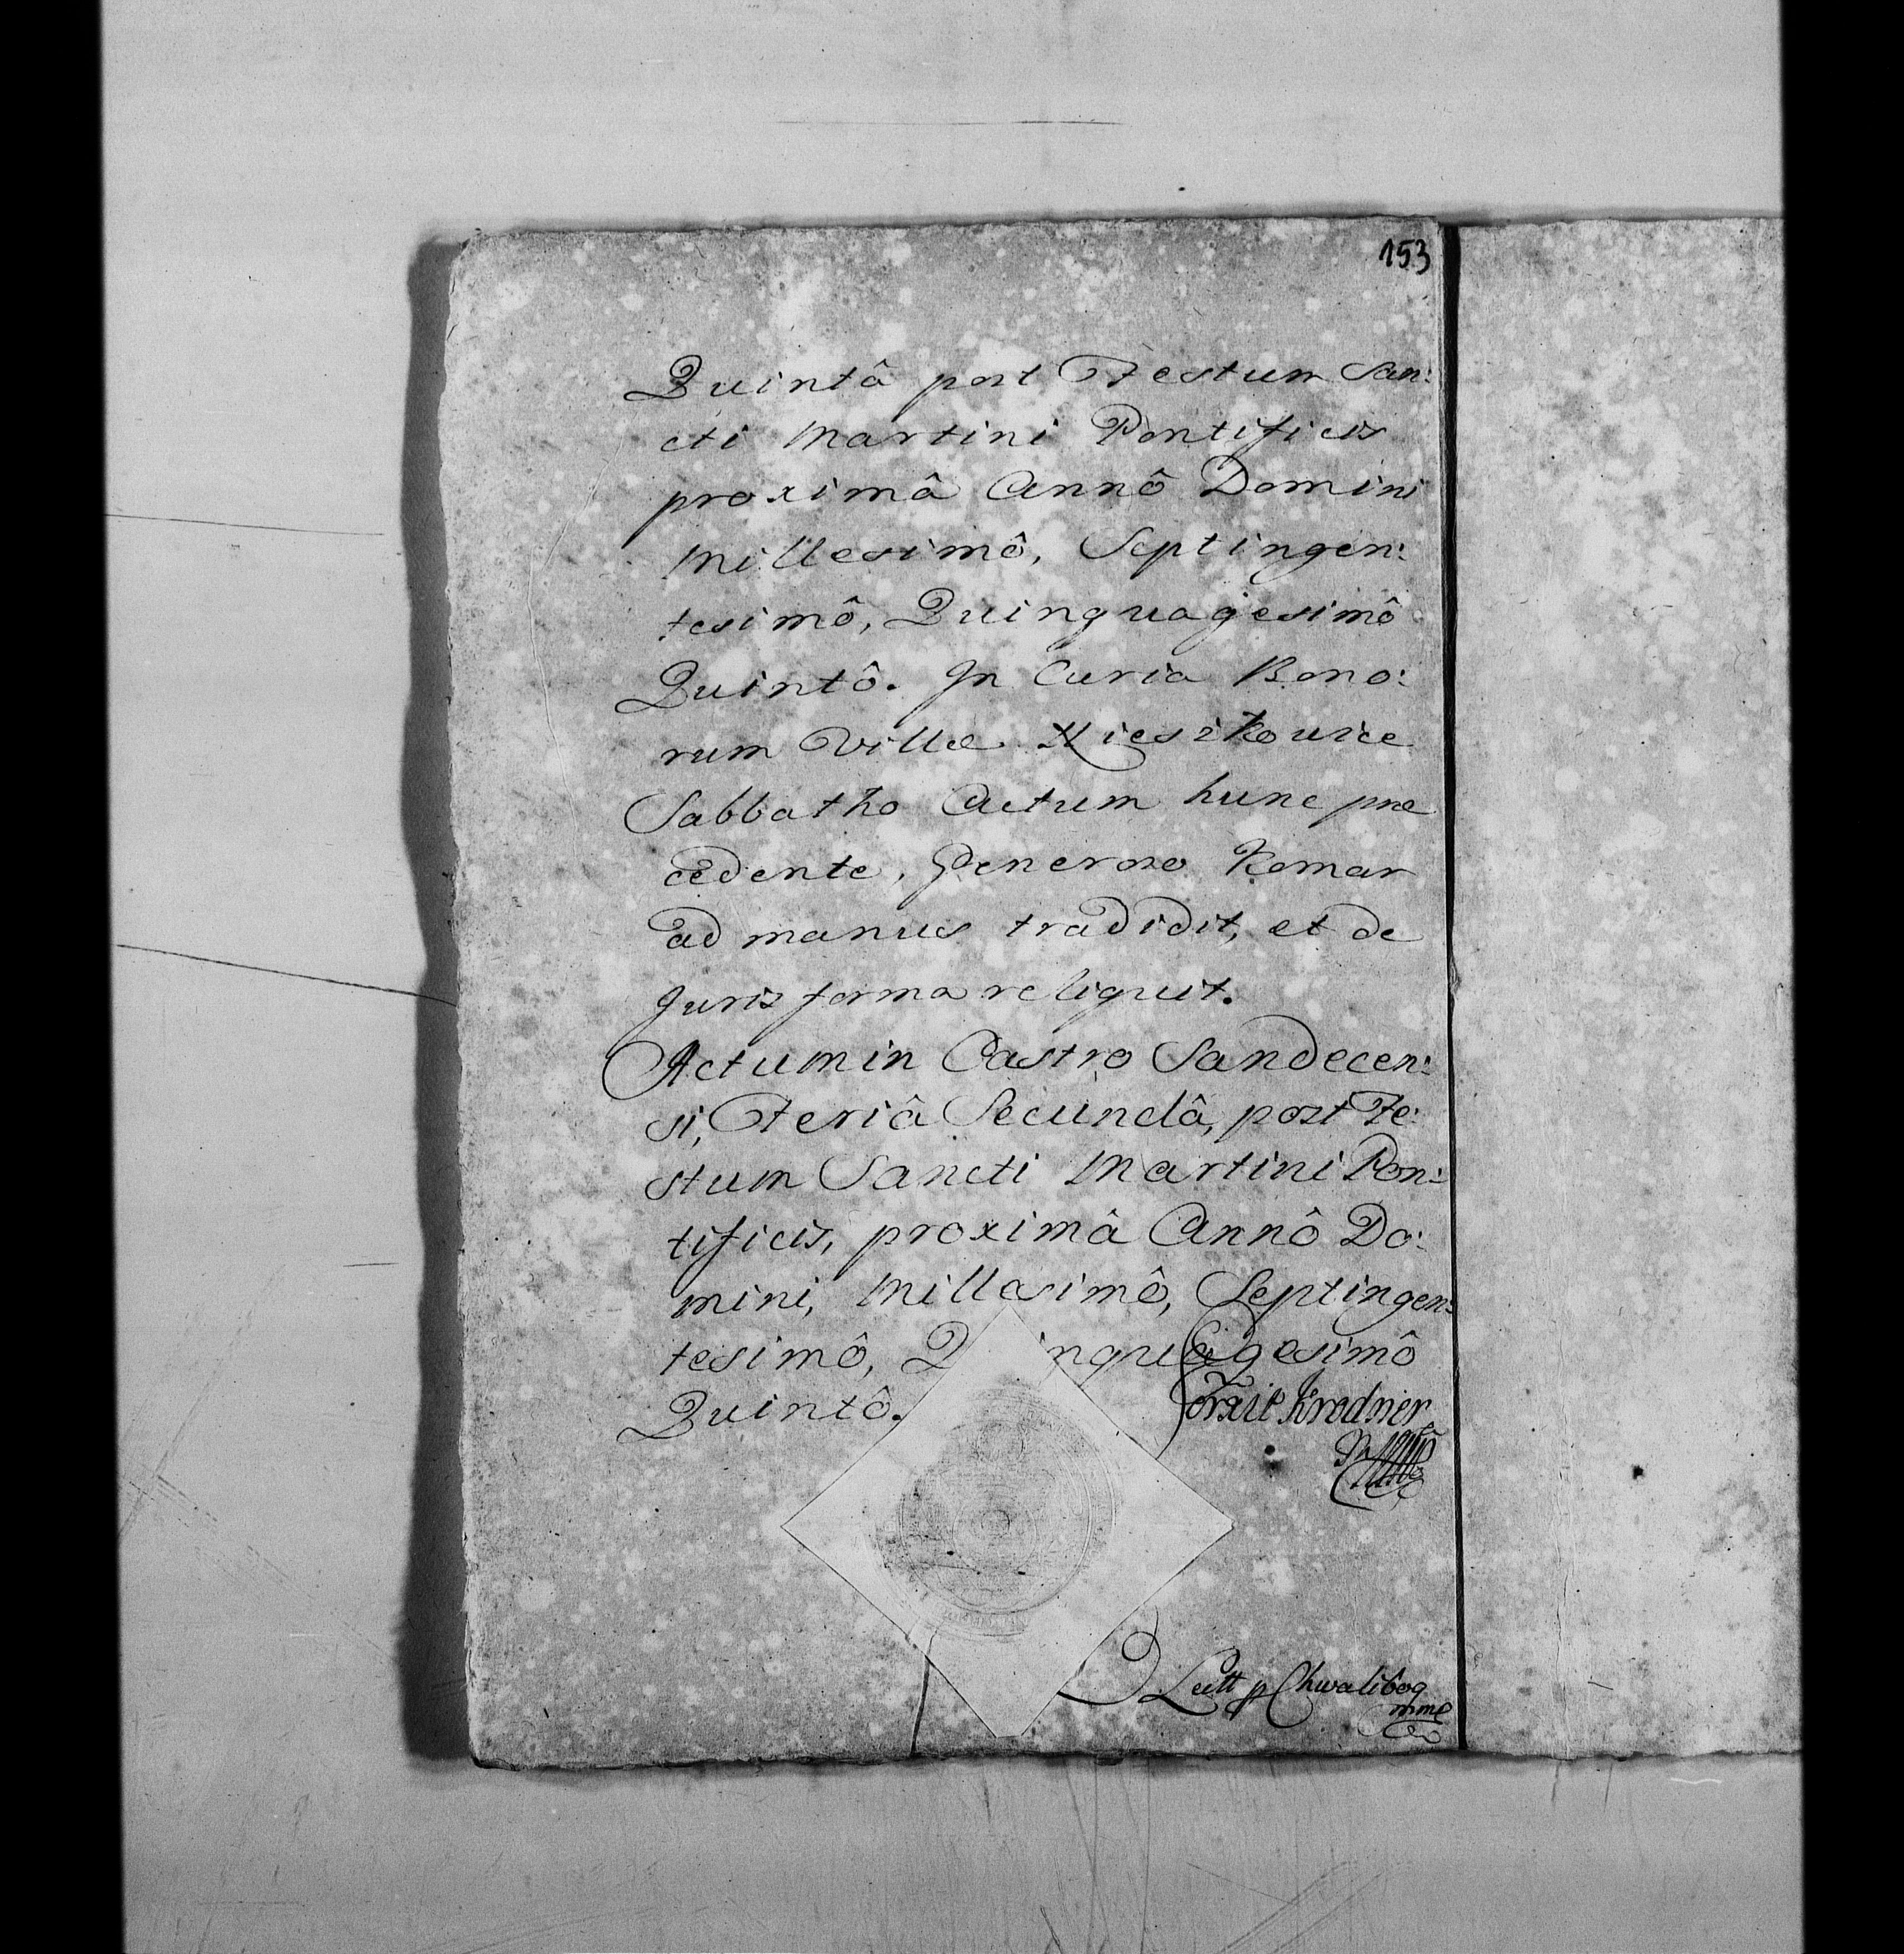 153
Quintâ post Festum San:
cti Martini Pontificis
proximâ Annô Domini
Millesimô, Septingen:
tesimô, Quinquagesimô
Quintô. In Curia Bono:
rum Villæ
Sabbatho Actum hunc præ
cedente, Generoso Komar
ad manus tradidit, et de
Juris forma reliquit.
Actum in Castro Sandecen:
si, Feriâ Secundâ, post Fe:
stum Sancti Martini Pon:
tificis, proximâ Annô Do:
mini, Millesimô, Septingen:
tesimô, Quinquagesimô
Quintô.
Krodner
Lectt p Chwalibog
mmp